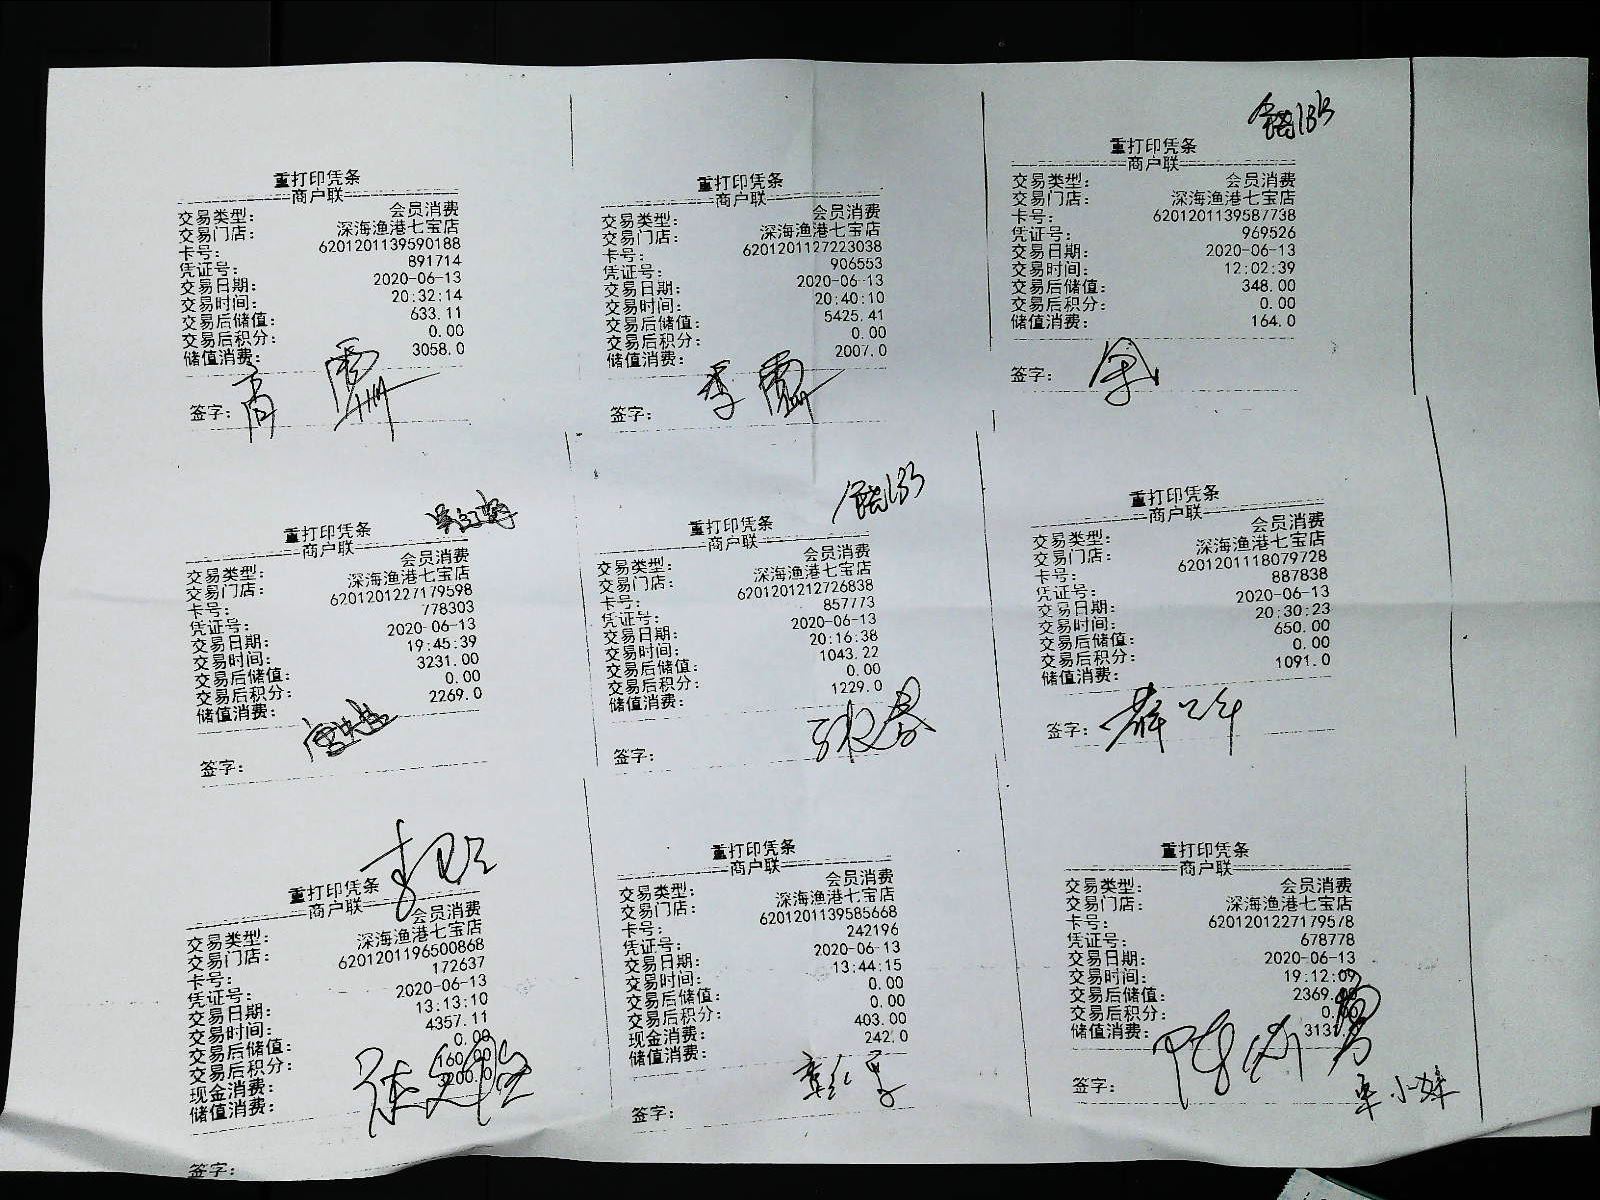 重打印凭条
商户联
交易类型： 会员消费
交易门店： 深海渔港七宝店
卡号： 6201201139590188
凭证号： 891714
交易日期： 2020-06-13
交易时间： 20:32:14
交易后储值： 633.11
交易后积分： 0.00
储值消费： 3058.0
签字：
重打印凭条
商户联
交易类型： 会员消费
交易门店： 深海渔港七宝店
卡号： 6201201127223038
凭证号： 906553
交易日期： 2020-06-13
交易时间： 20:40:10
交易后储值： 5425.41
交易后积分： 0.00
储值消费： 2007.0
签字： 李
重打印凭条
商户联
交易类型： 会员消费
交易门店： 深海渔港七宝店
卡号： 6201201139587738
凭证号： 969526
交易日期： 2020-06-13
交易时间： 12:02:39
交易后储值： 348.00
交易后积分： 0.00
储值消费： 164.0
签字：
重打印凭条
商户联
交易类型： 会员消费
交易门店： 深海渔港七宝店
卡号： 6201201227179598
凭证号： 778303
交易日期： 2020-06-13
交易时间： 19:45:39
交易后储值： 3231.00
交易后积分： 0.00
储值消费： 2269.0
签字：
重打印凭条
商户联
交易类型： 会员消费
交易门店： 深海渔港七宝店
卡号： 6201201212726838
凭证号： 857773
交易日期： 2020-06-13
交易时间： 20:16:38
交易后储值： 1043.22
交易后积分： 0.00
储值消费： 1229.0
签字： 张春
重打印凭条
商户联
交易类型： 会员消费
交易门店： 深海渔港七宝店
卡号： 6201201118079728
凭证号： 887838
交易日期： 2020-06-13
交易时间： 20:30:23
交易后储值： 650.00
交易后积分： 0.00
储值消费： 1091.0
签字：
重打印凭条
商户联
交易类型： 会员消费
交易门店： 深海渔港七宝店
卡号： 6201201196500868
凭证号： 172637
交易日期： 2020-06-13
交易时间： 13:13:10
交易后储值： 4357.11
交易后积分： 0.00
现金消费： 160.00
储值消费： 3200.0
签字：
重打印凭条
商户联
交易类型： 会员消费
交易门店： 深海渔港七宝店
卡号： 6201201139585668
凭证号： 242196
交易日期： 2020-06-13
交易时间： 13:44:15
交易后储值： 0.00
交易后积分： 0.00
现金消费： 403.00
储值消费： 242.0
签字：
重打印凭条
商户联
交易类型： 会员消费
交易门店： 深海渔港七宝店
卡号： 6201201227179578
凭证号： 678778
交易日期： 2020-06-13
交易时间： 19:12:09
交易后储值： 2369.00
交易后积分： 0.00
储值消费： 3131
签字：